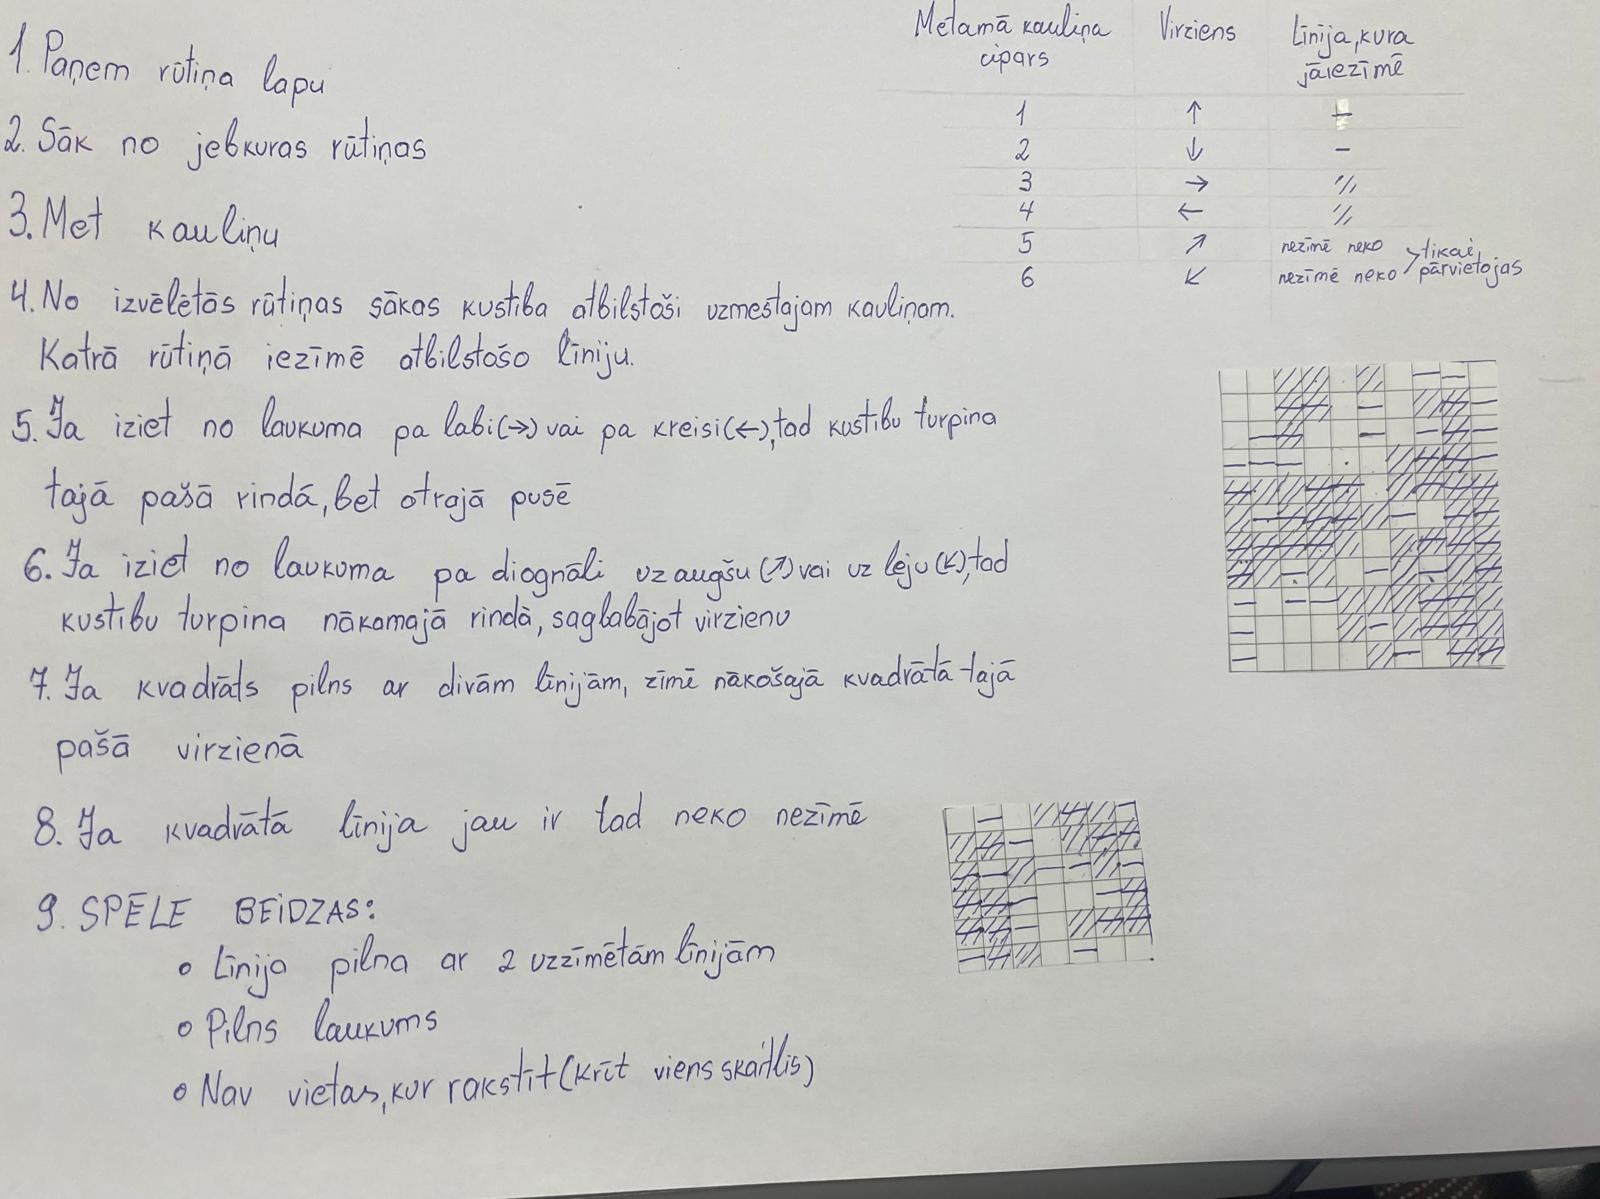 1. Paņem rūtiņa lapu
2. Sāk no jebkuras rūtiņas
3. Met kauliņu
4. No izvēlētās rūtiņas sākas kustība atbilstoši uzmestajam kauliņam.
Katrā rūtiņā iezīmē atbilstošo līniju.
5. Ja iziet no laukuma pa labi(→) vai pa kreisi(←), tad kustību turpina
tajā pašā rindā, bet otrajā pusē
6. Ja iziet no laukuma pa diognāli uz augšu (↗) vai uz leju (↙), tad
kustību turpina nākamajā rindā, saglabājot virzienu
7. Ja kvadrāts pilns ar divām līnijām, zīmē nākošajā kvadrātā tajā
pašā virzienā
8. Ja kvadrātā līnija jau ir tad neko nezīmē
9. SPĒLE BEIDZAS:
• Līnija pilna ar 2 uzzīmētām līnijām
• Pilns laukums
• Nav vietas, kur rakstīt (krīt viens skaitlis)
Metamā kauliņa Virziens Līnija, kura
cipars jāiezīmē
1 ↑ –
2 ↓ –
3 → ///
4 ← ///
5 ↗ nezīmē neko > tikai
6 ↙ nezīmē neko pārvietojas